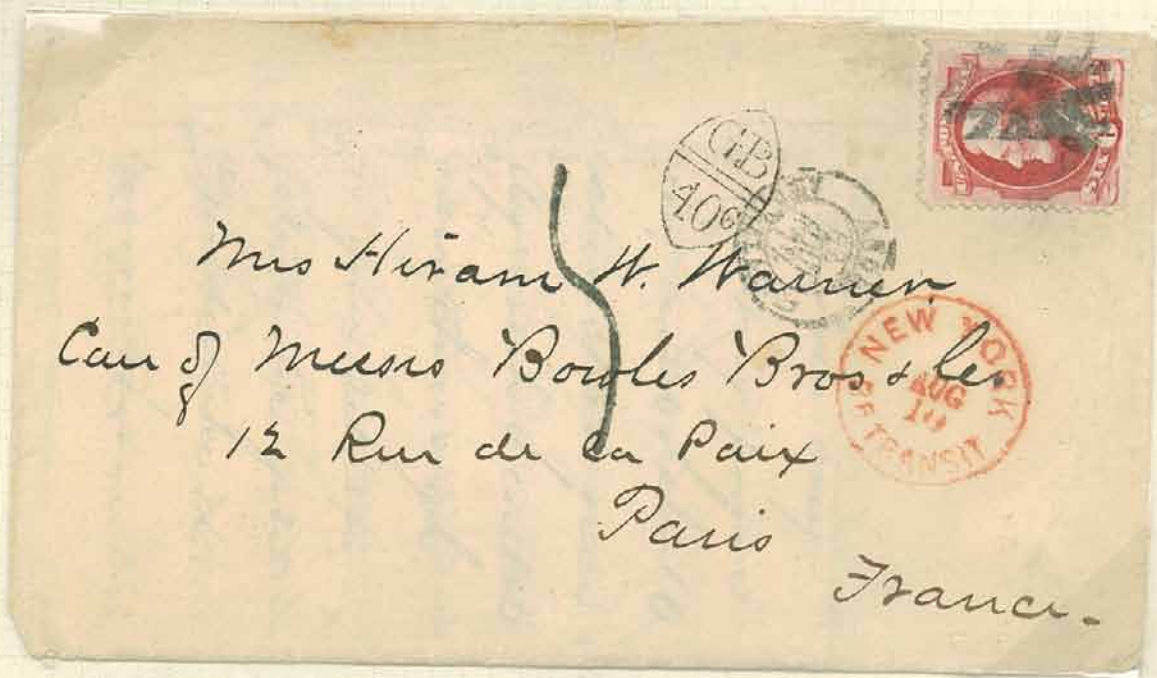 GB
40c
Mrs Hiram W. Warner,
Care of Messrs Bowles Bros & Co
12 Rue de la Paix
Paris
France.
5
NEW YORK
AUG
10
BR TRANSIT